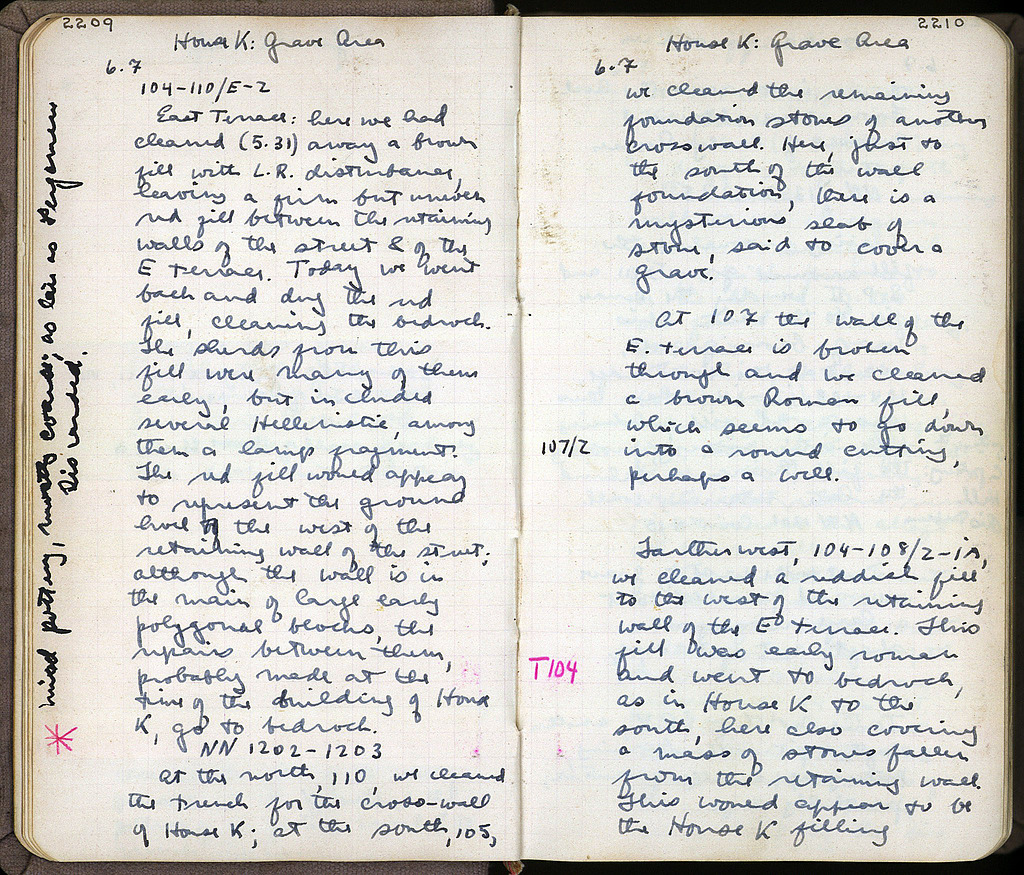 2209
House K: Grave Area
6.7
104-110/E-2
East Terrace: here we had
cleaned (5.31) away a brown
fill with L.R. disturbance,
leaving a firm but uneven
red fill between the retaining
walls of the street & of the
E terrace. Today we went
back and dug the red
fill, cleaning the bedrock.
The sherds from this
fill were many of them
early, but included
several Hellenistic, among
them a lamp fragment.
The red fill would appear
to represent the ground
level to the west of the
retaining wall of the street;
although the wall is in
the main of large early
polygonal blocks, the
repairs between them,
probably made at the
time of the building of House
K, go to bedrock.
NN 1202-1203
At the north, 110, we cleaned
the trench for the cross-wall
of House K; at the south, 105,
* mixed pottery, mostly coarse; as late as Pergamene
Discarded.
2210
House K: Grave Area
6.7
we cleaned the remaining
foundation stones of another
crosswall. Here, just to
the south of the wall
foundation, there is a
mysterious slab of
stone, said to cover a
grave.
At 107 the wall of the
E. terrace is broken
through and we cleaned
a brown Roman fill,
which seems to go down
107/2 into a round cutting,
perhaps a well.
Farther west, 104-108/2-1A,
we cleaned a reddish fill
to the west of the retaining
wall of the E terrace. This
fill was early roman
T104 and went to bedrock,
as in House K to the
south, here also covering
a mass of stones fallen
from the retaining wall.
This would appear to be
the House K filling